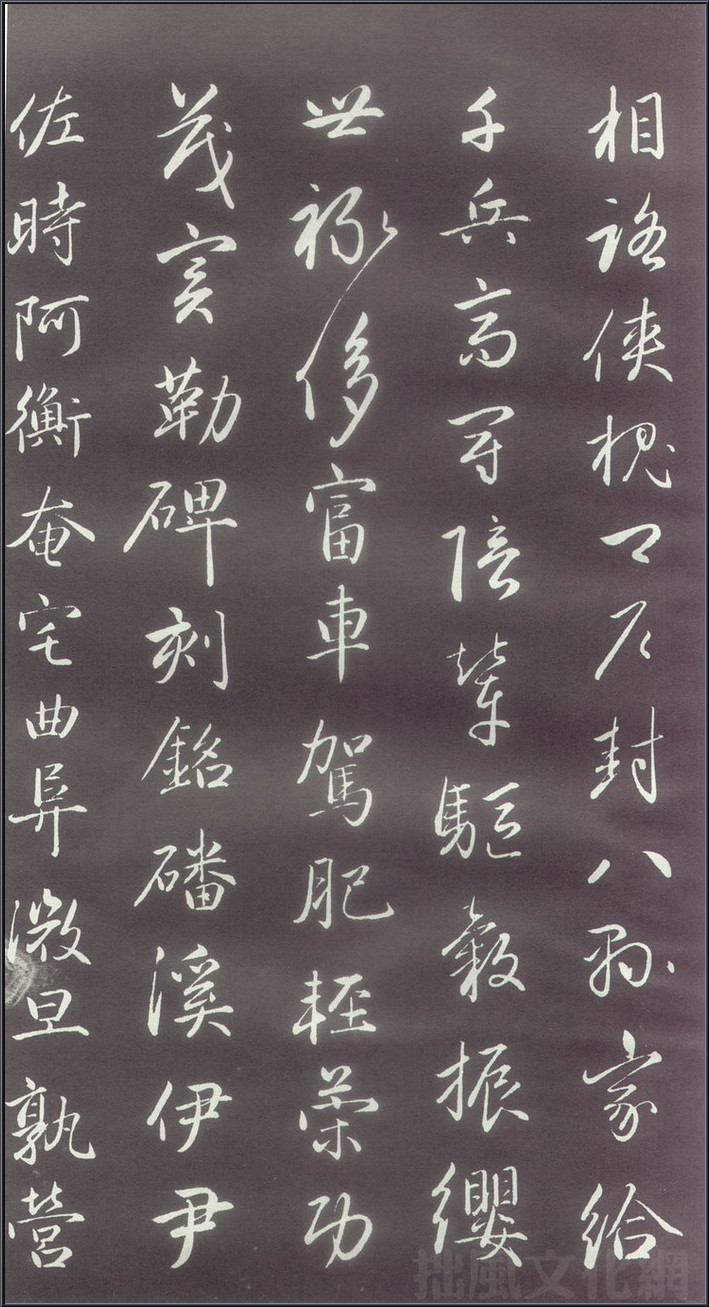 相路俠槐卿户封八縣家給
千兵高冠陪輦驅轂振纓
世祿侈富車駕肥輕策功
茂實勒碑刻銘磻溪伊尹
佐時阿衡奄宅曲阜微旦孰營
拙風文化網